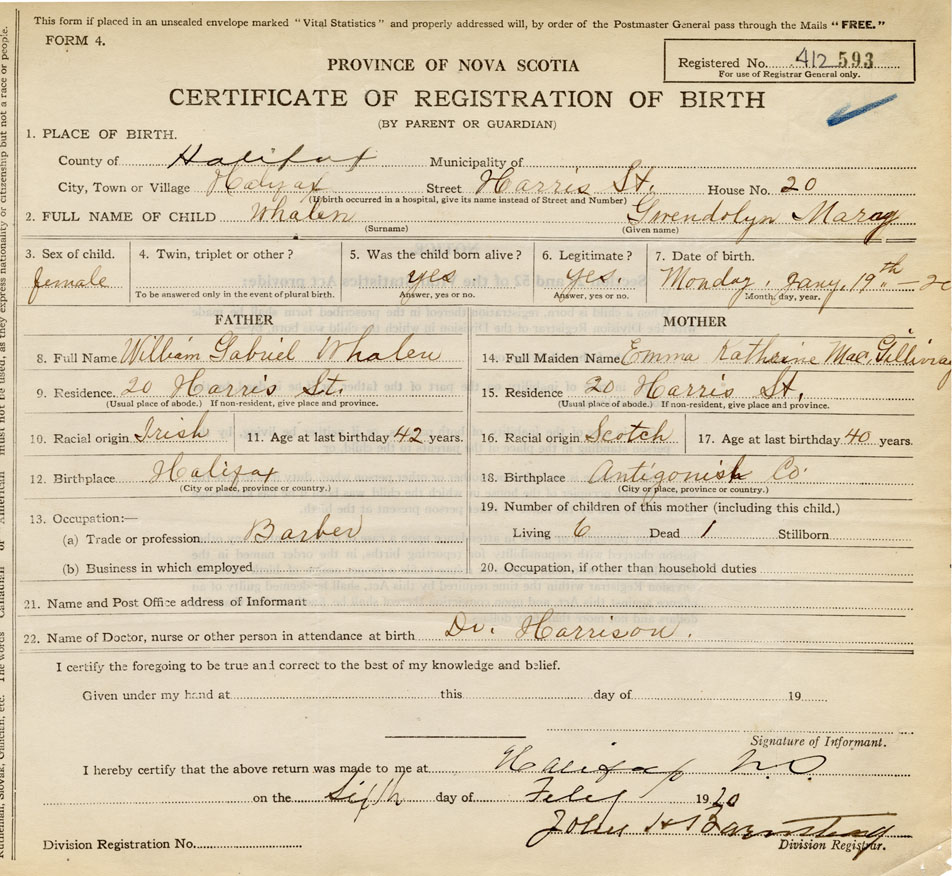 This form if placed in an unsealed envelope marked "Vital Statistics" and properly addressed will, by order of the Postmaster General pass through the Mails "FREE."
FORM 4.
Registered No. 412 593
For use of Registrar General only.
PROVINCE OF NOVA SCOTIA
CERTIFICATE OF REGISTRATION OF BIRTH
(BY PARENT OR GUARDIAN)
1. PLACE OF BIRTH.
County of Halifax Municipality of
City, Town or Village Halifax Street Harris St. House No. 20
(If birth occurred in a hospital, give its name instead of Street and Number)
2. FULL NAME OF CHILD Whalen Gwendolyn
(Surname) (Given name)
3. Sex of child. 4. Twin, triplet or other? 5. Was the child born alive? 6. Legitimate? 7. Date of birth.
female yes yes. Monday. Jany. 19th – 20
To be answered only in the event of plural birth. Answer, yes or no. Answer, yes or no. Month, day, year.
FATHER MOTHER
8. Full Name William Gabriel Whalen 14. Full Maiden Name Emma Kathrine Mac Gillivray
9. Residence. 20 Harris St. 15. Residence 20 Harris St.
(Usual place of abode.) If non-resident, give place and province. (Usual place of abode.) If non-resident, give place and province.
10. Racial origin Irish 11. Age at last birthday 42 years. 16. Racial origin Scotch 17. Age at last birthday 40 years.
12. Birthplace Halifax 18. Birthplace Antigonish Co.
(City or place, province or country.) (City or place, province or country.)
13. Occupation:— 19. Number of children of this mother (including this child.)
(a) Trade or profession Barber Living 6 Dead 1 Stillborn
(b) Business in which employed 20. Occupation, if other than household duties
21. Name and Post Office address of Informant
22. Name of Doctor, nurse or other person in attendance at birth Dr. Harrison.
I certify the foregoing to be true and correct to the best of my knowledge and belief.
Given under my hand at this day of 19
Signature of Informant.
I hereby certify that the above return was made to me at Halifax N.S.
on the Sixth day of Feby 1920
John H Barnstead
Division Registration No. Division Registrar.